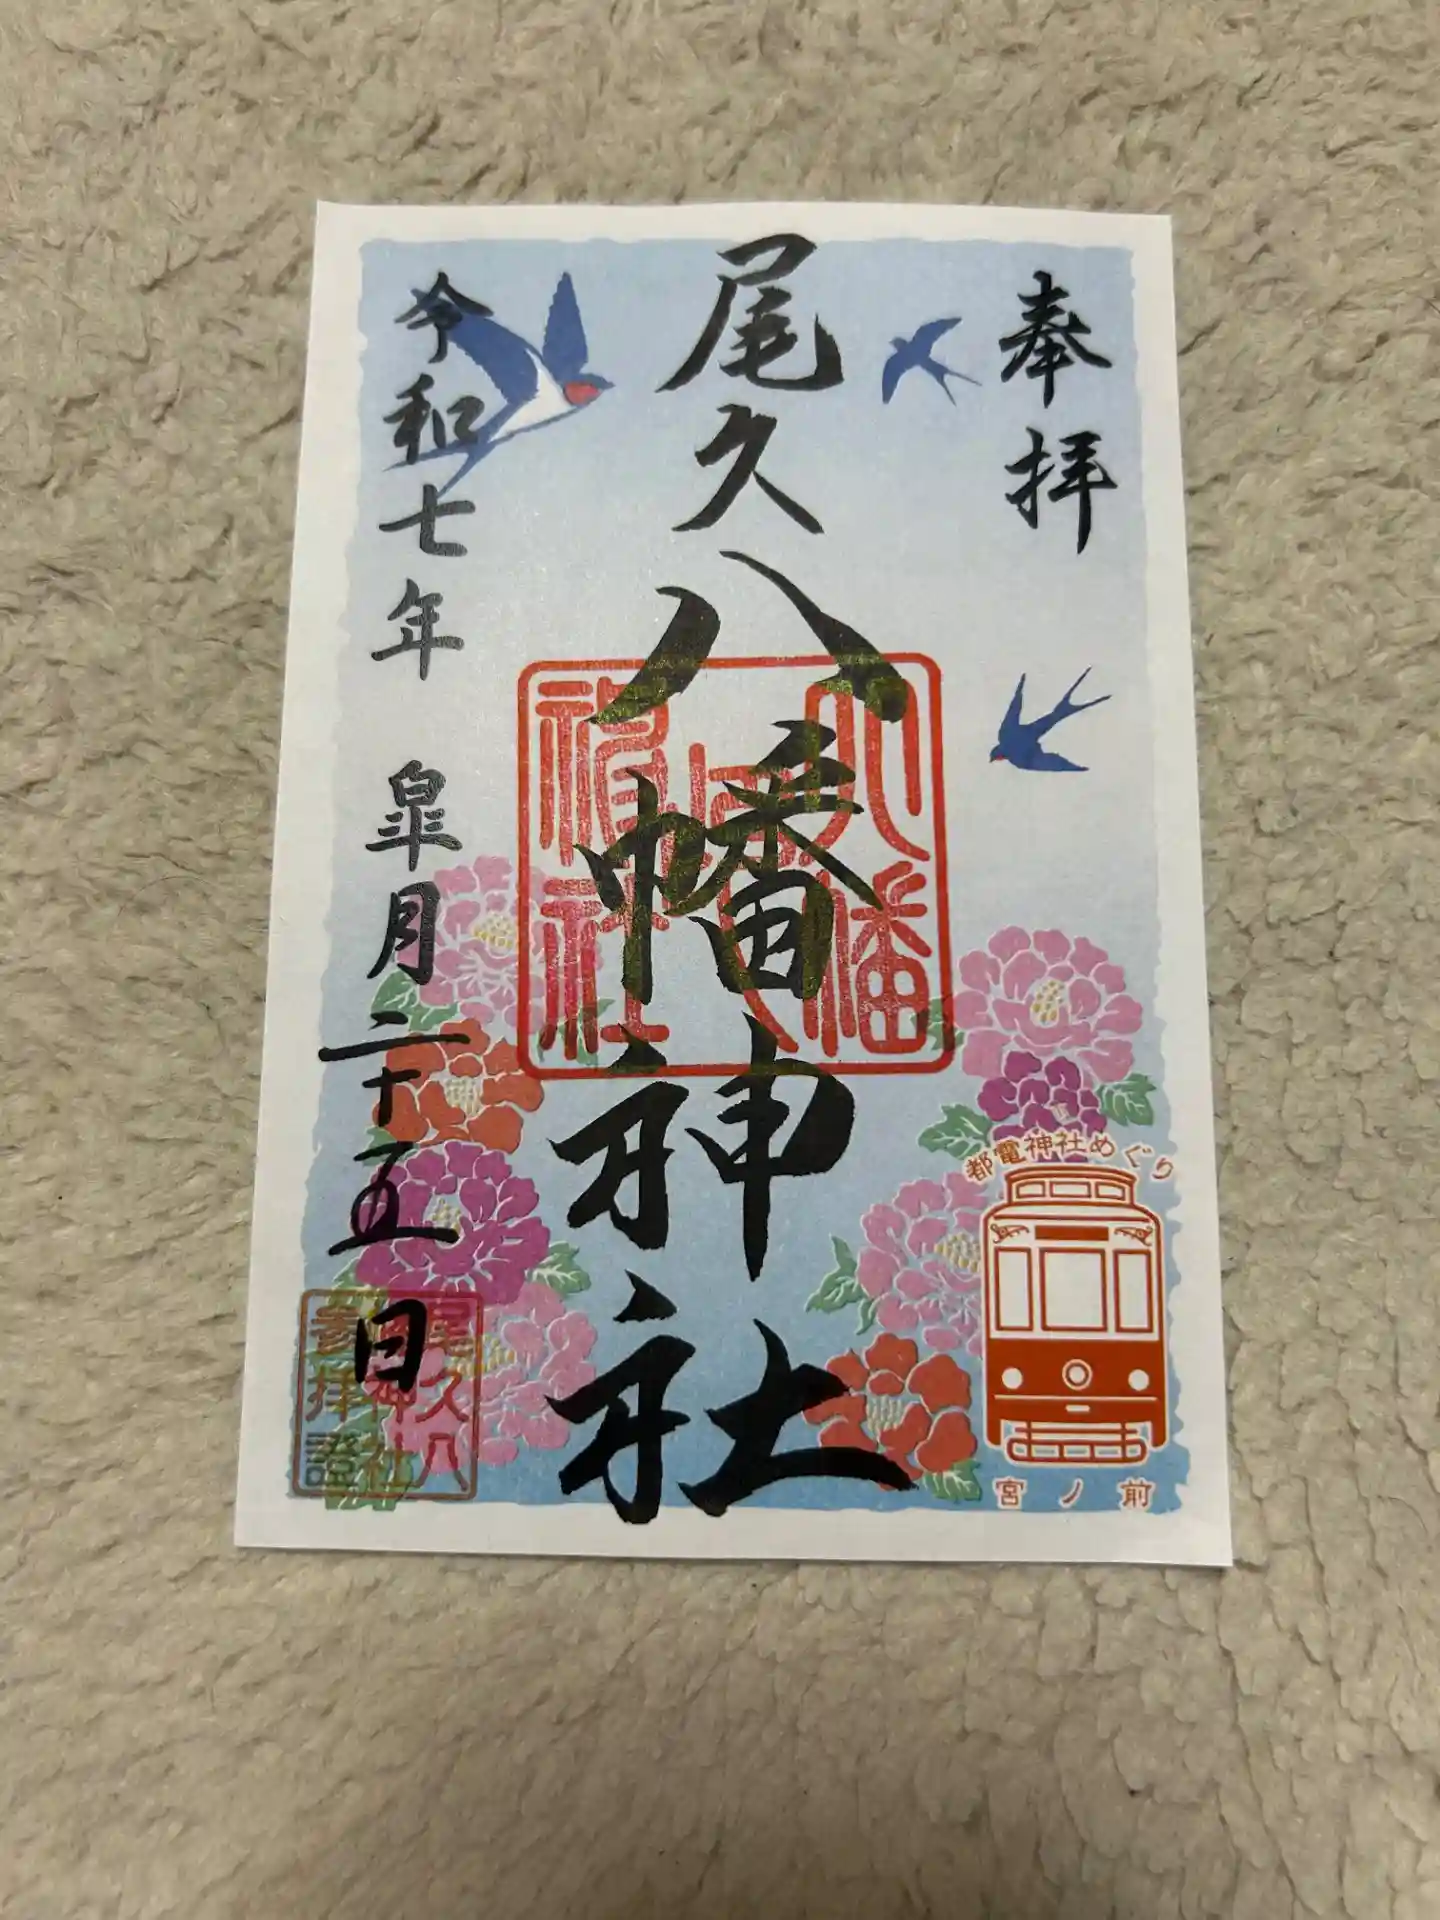 奉拝
尾久八幡神社
令和七年 皐月二十五日
八幡
神社
都電神社めぐり
宮ノ前
尾久八
幡神社
参拝證